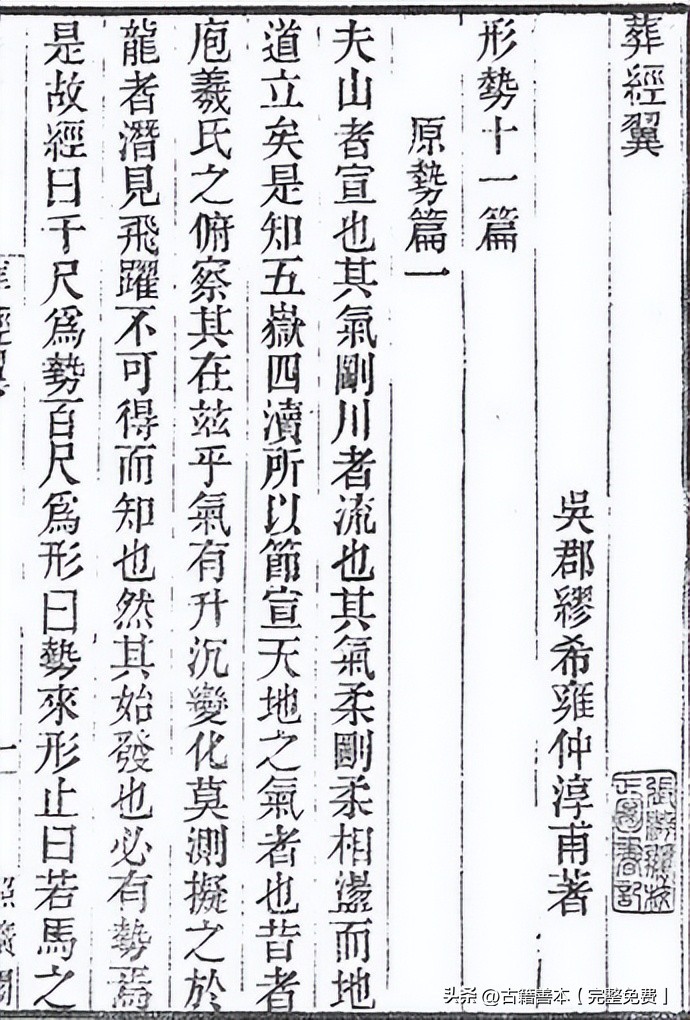 葬經翼
吳郡繆希雍仲淳甫著
形勢十一篇
原勢篇一
夫山者宣也其氣剛川者流也其氣柔剛柔相盪而地
道立矣是知五嶽四瀆所以節宣天地之氣者也昔者
庖羲氏之俯察其在玆乎氣有升沉變化莫測擬之於
龍者潛見飛躍不可得而知也然其始發也必有勢焉
是故經曰千尺爲勢百尺爲形曰勢來形止曰若馬之
一
照曠閣
头条 @古籍善本【完整免费】